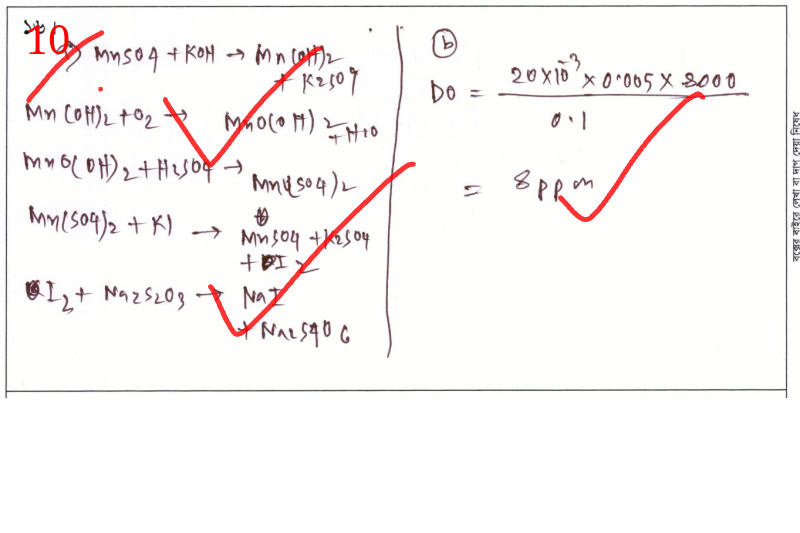 10
MnSO4 + KOH → Mn(OH)2
+ K2SO4
Mn(OH)2 + O2 → MnO(OH)2
+ H2O
MnO(OH)2 + H2SO4 →
Mn(SO4)2
Mn(SO4)2 + KI →
MnSO4 + K2SO4
+ I2
I2 + Na2S2O3 → NaI
+ Na2S4O6
ⓑ
DO = 20×10⁻³ × 0.005 × 8000
0.1
= 8 ppm
বক্সের বাইরে লেখা বা দাগ দেয়া নিষেধ